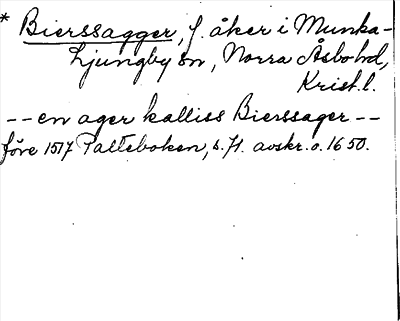 * Bierssagger, f. åker i Munka-
Ljungby sn, Norra Åsbo hd,
Krist. l.
-- en ager kalliss Bierssager --
före 1517 Palteboken, s. 71. avskr. o. 1650.